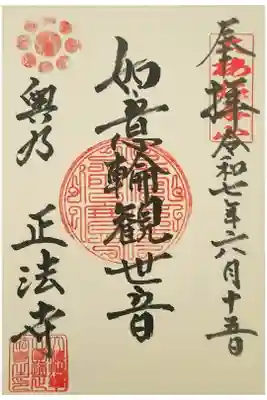 奉拝
令和七年六月十五日
如意輪観世音
奥乃
正法寺